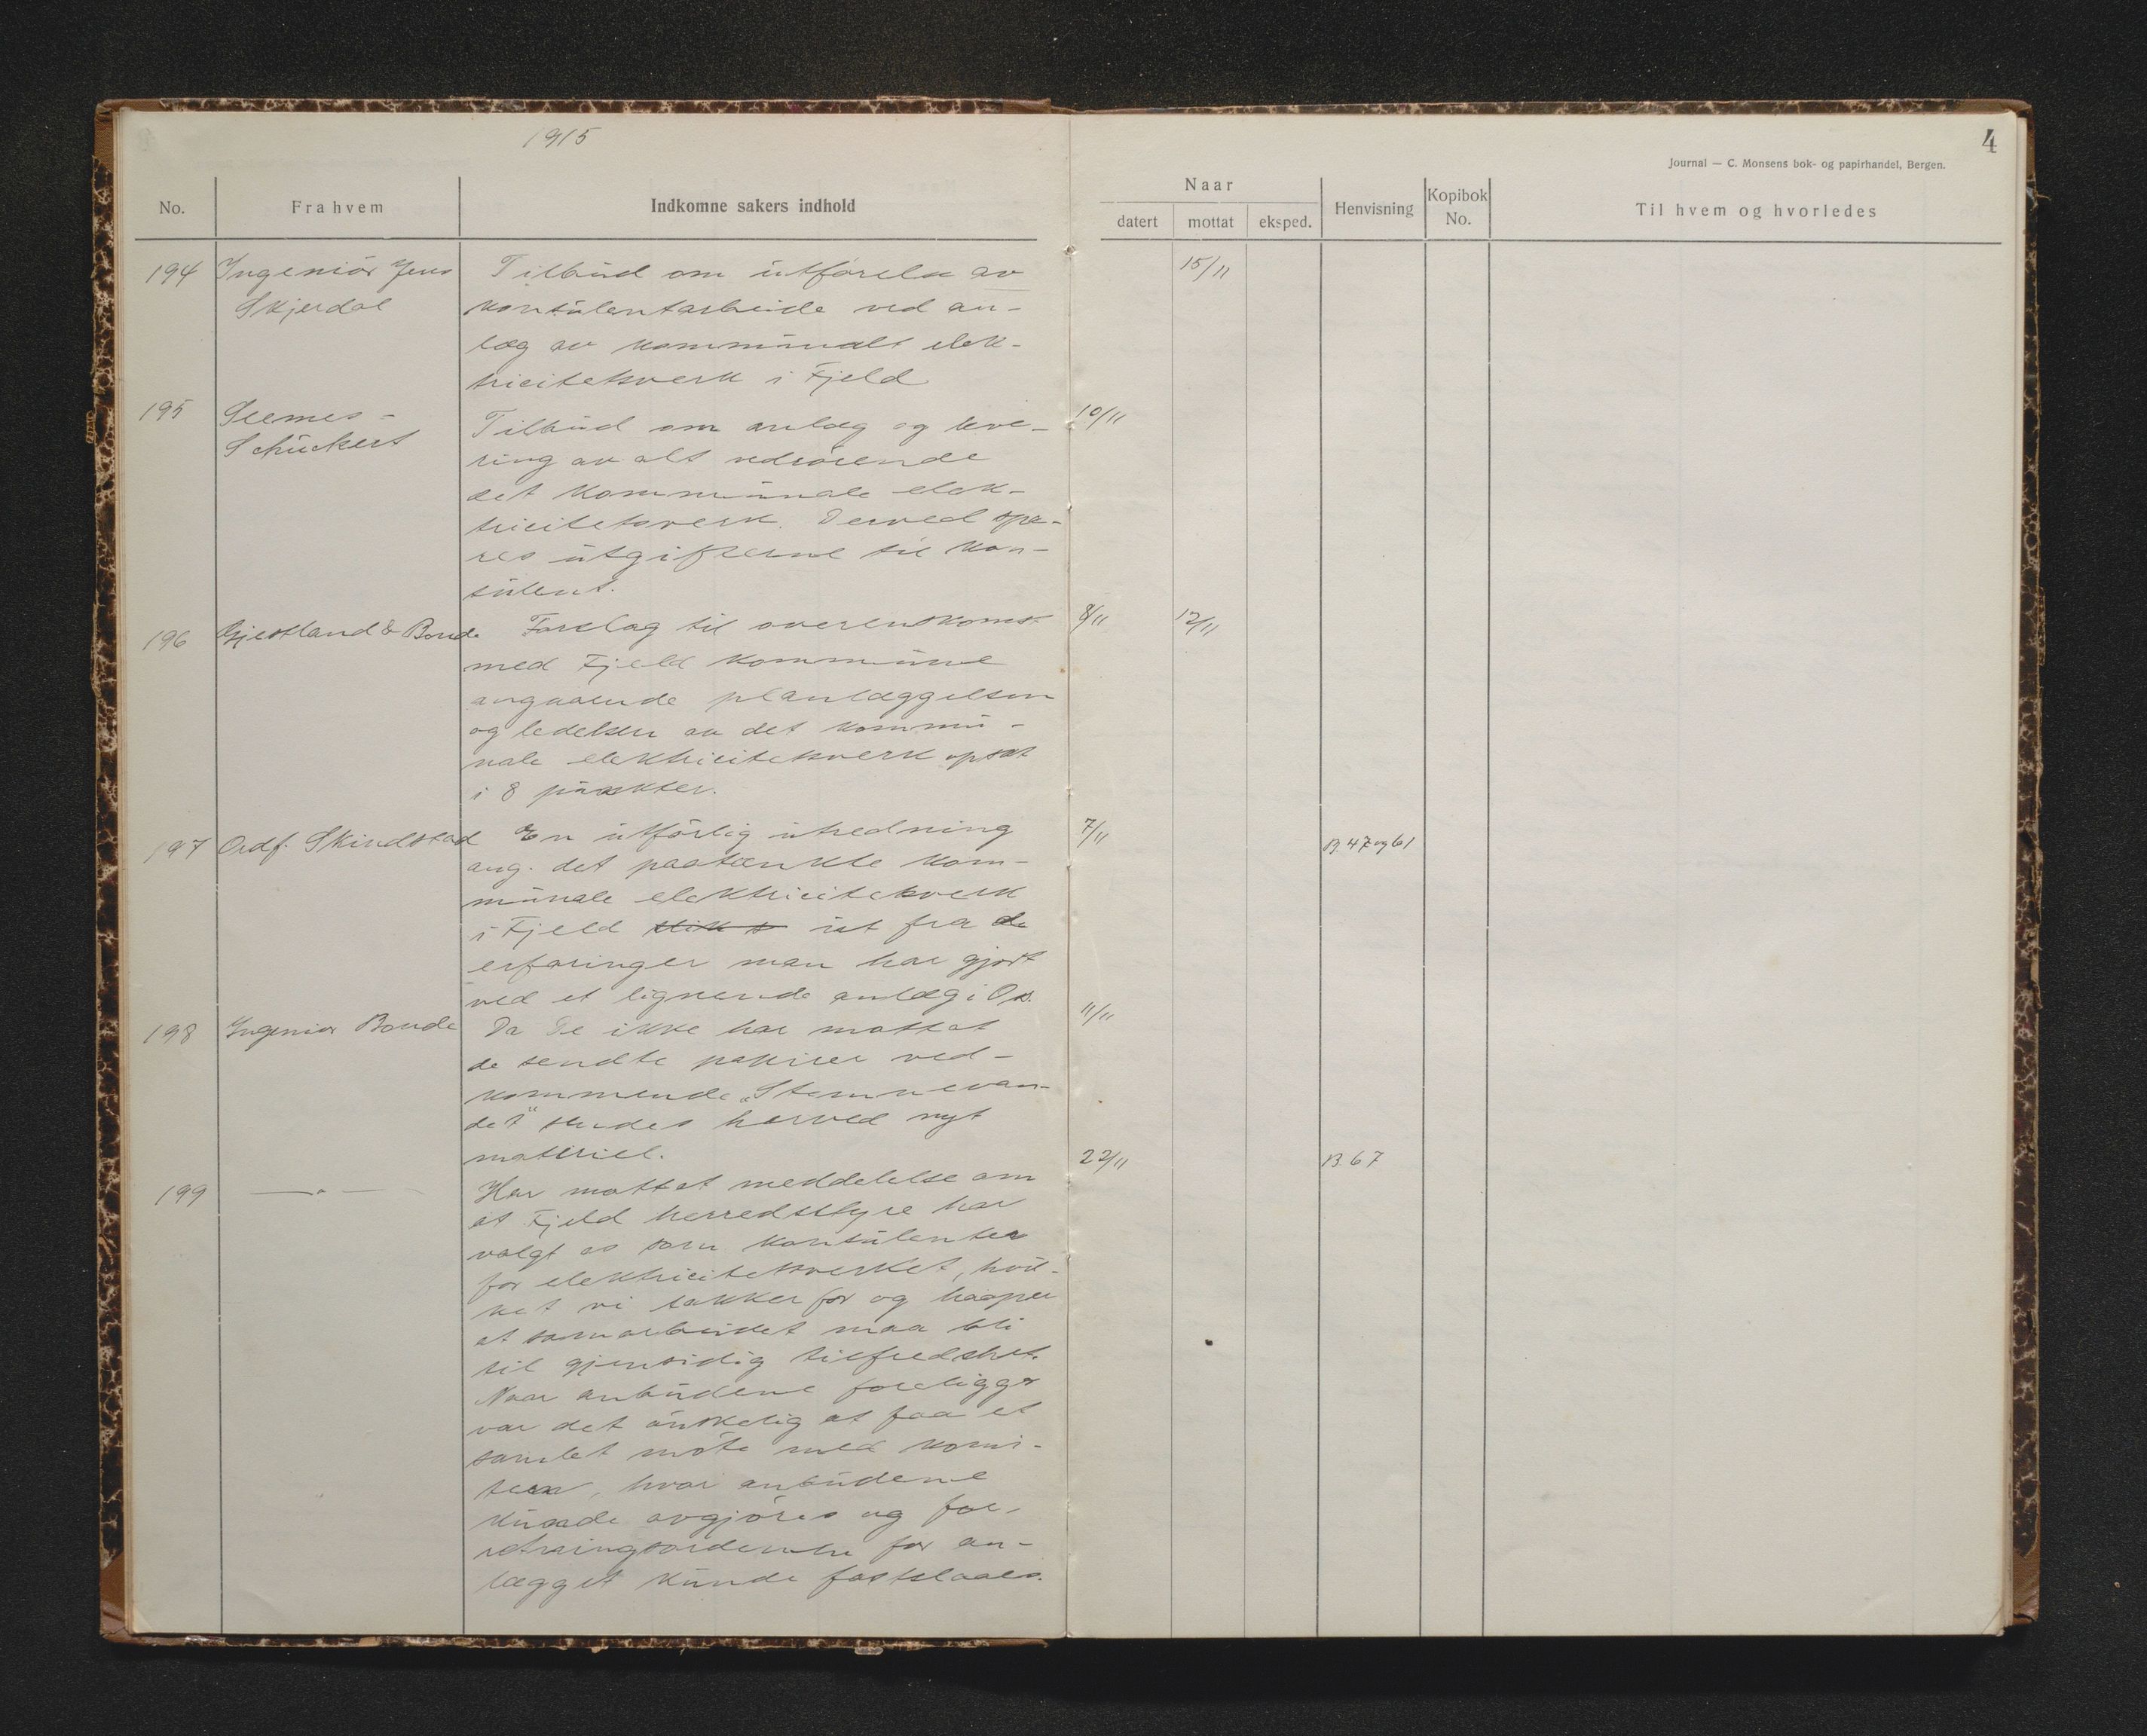 1915
4
Journal — C. Monsens bok- og papirhandel, Bergen.
No.
Fra hvem
Indkomne sakers indhold
Naar
datert
mottat
eksped.
Henvisning
Kopibok
No.
Til hvem og hvorledes
194 Ingeniör Jens
Skjerdal
Tilbud om utförelse av
konsulentarbeide ved an-
læg av kommunalt elek-
tricitetsverk i Fjeld
15/11
195 Siemes-
Schuckert
Tilbud om anlæg og leve-
ring av alt vedrörende
det kommunale elek-
tricitetsverk. Derved spa-
res utgifterne til kon-
sulent.
10/11
196 Gjestland & Bonde
Forslag til overenskomst
med Fjeld kommune
angaaende planlæggelsen
og ledelsen av det kommu-
nale elektricitetsverk opsat
i 8 punkter.
8/11 12/11
197 Ordf. Skindstad
En utförlig utredning
ang. det paatænkte kom-
munale elektricitetsverk
i Fjeld ut fra de
erfaringer man har gjort
ved et lignende anlæg i Os.
7/11 B. 47 og 61
198 Ingeniör Bonde
Da De ikke har mottat
de sendte papirer ved-
kommende "Stemnevan-
det" sendes herved nyt
materiel.
11/11
199 —"—
Har mottat meddelelse om
at Fjeld herredstyre har
valgt os som konsulenter
for elektricitetsverket, hvil-
ket vi takker for og haaper
at samarbeidet maa bli
til gjensidig tilfredshet.
Naar anbudene foreligger
var det önskelig at faa et
samlet möte med komi-
teen, hvor anbudene
kunde avgjöres og for-
retningsordenen for an-
lægget kunde fastslaaes.
22/11 B 67